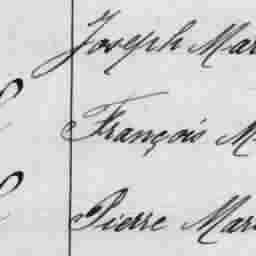 Joseph Mar
François M
Pierre Mar